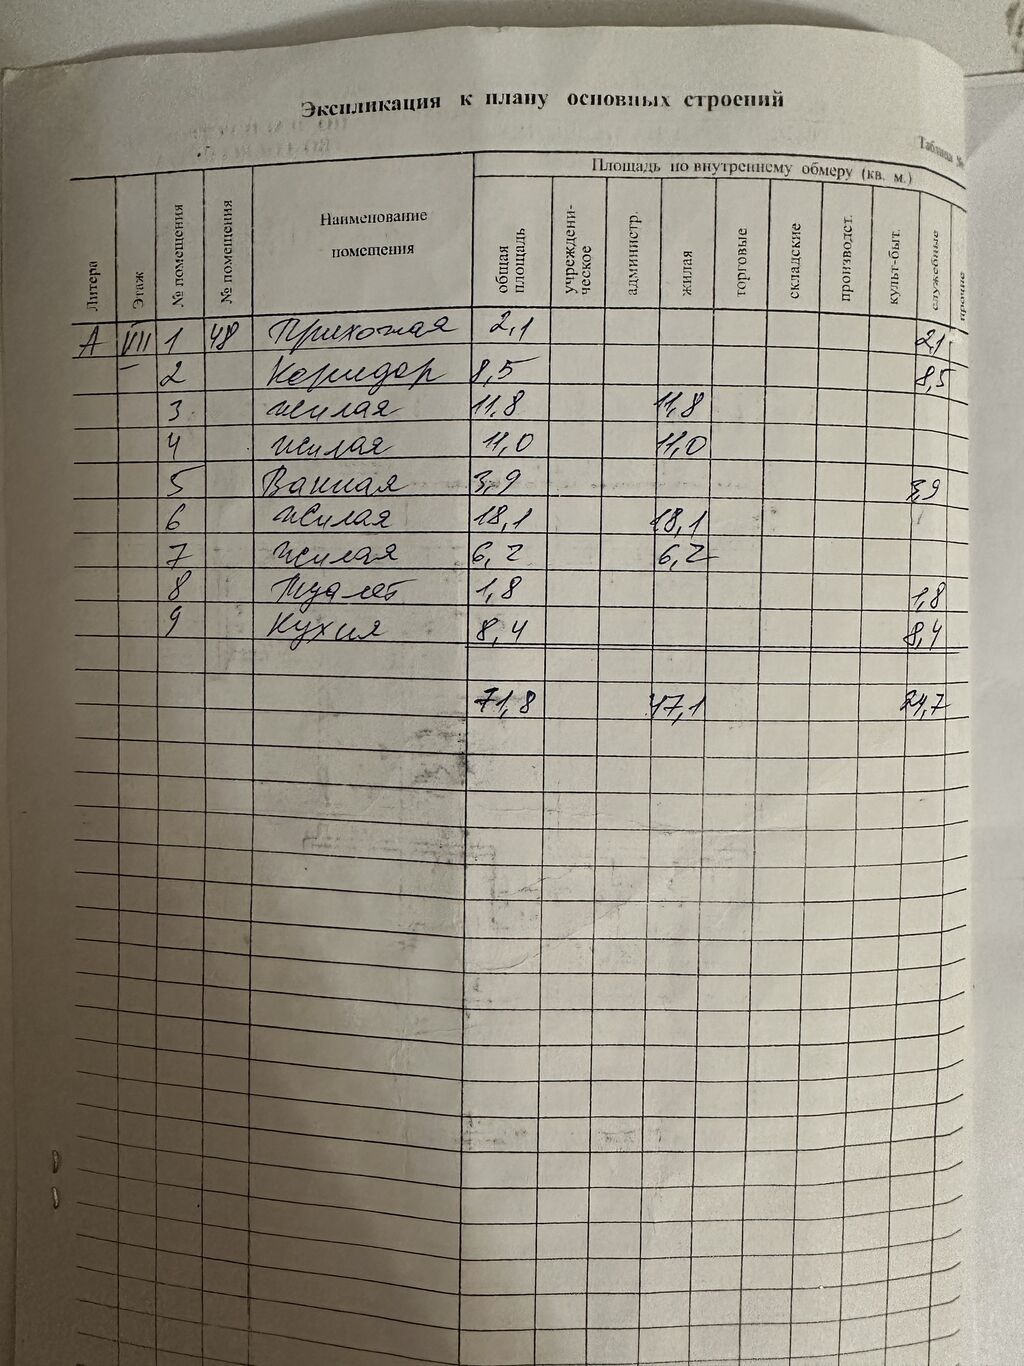 Экспликация к плану основных строений
Таблица №
Литера
Этаж
№ помещения
№ помещения
Наименование помещения
Площадь по внутреннему обмеру (кв. м.)
общая площадь
учреждени-ческое
администр.
жилая
торговые
складские
производст.
культ-быт.
служебные
прочие
А VII 1 48 Прихожая 2,1 2,1
2 Коридор 8,5 8,5
3 жилая 11,8 11,8
4 жилая 11,0 11,0
5 Ванная 3,9 3,9
6 жилая 18,1 18,1
7 жилая 6,2 6,2
8 Туалет 1,8 1,8
9 Кухня 8,4 8,4
71,8 47,1 24,7